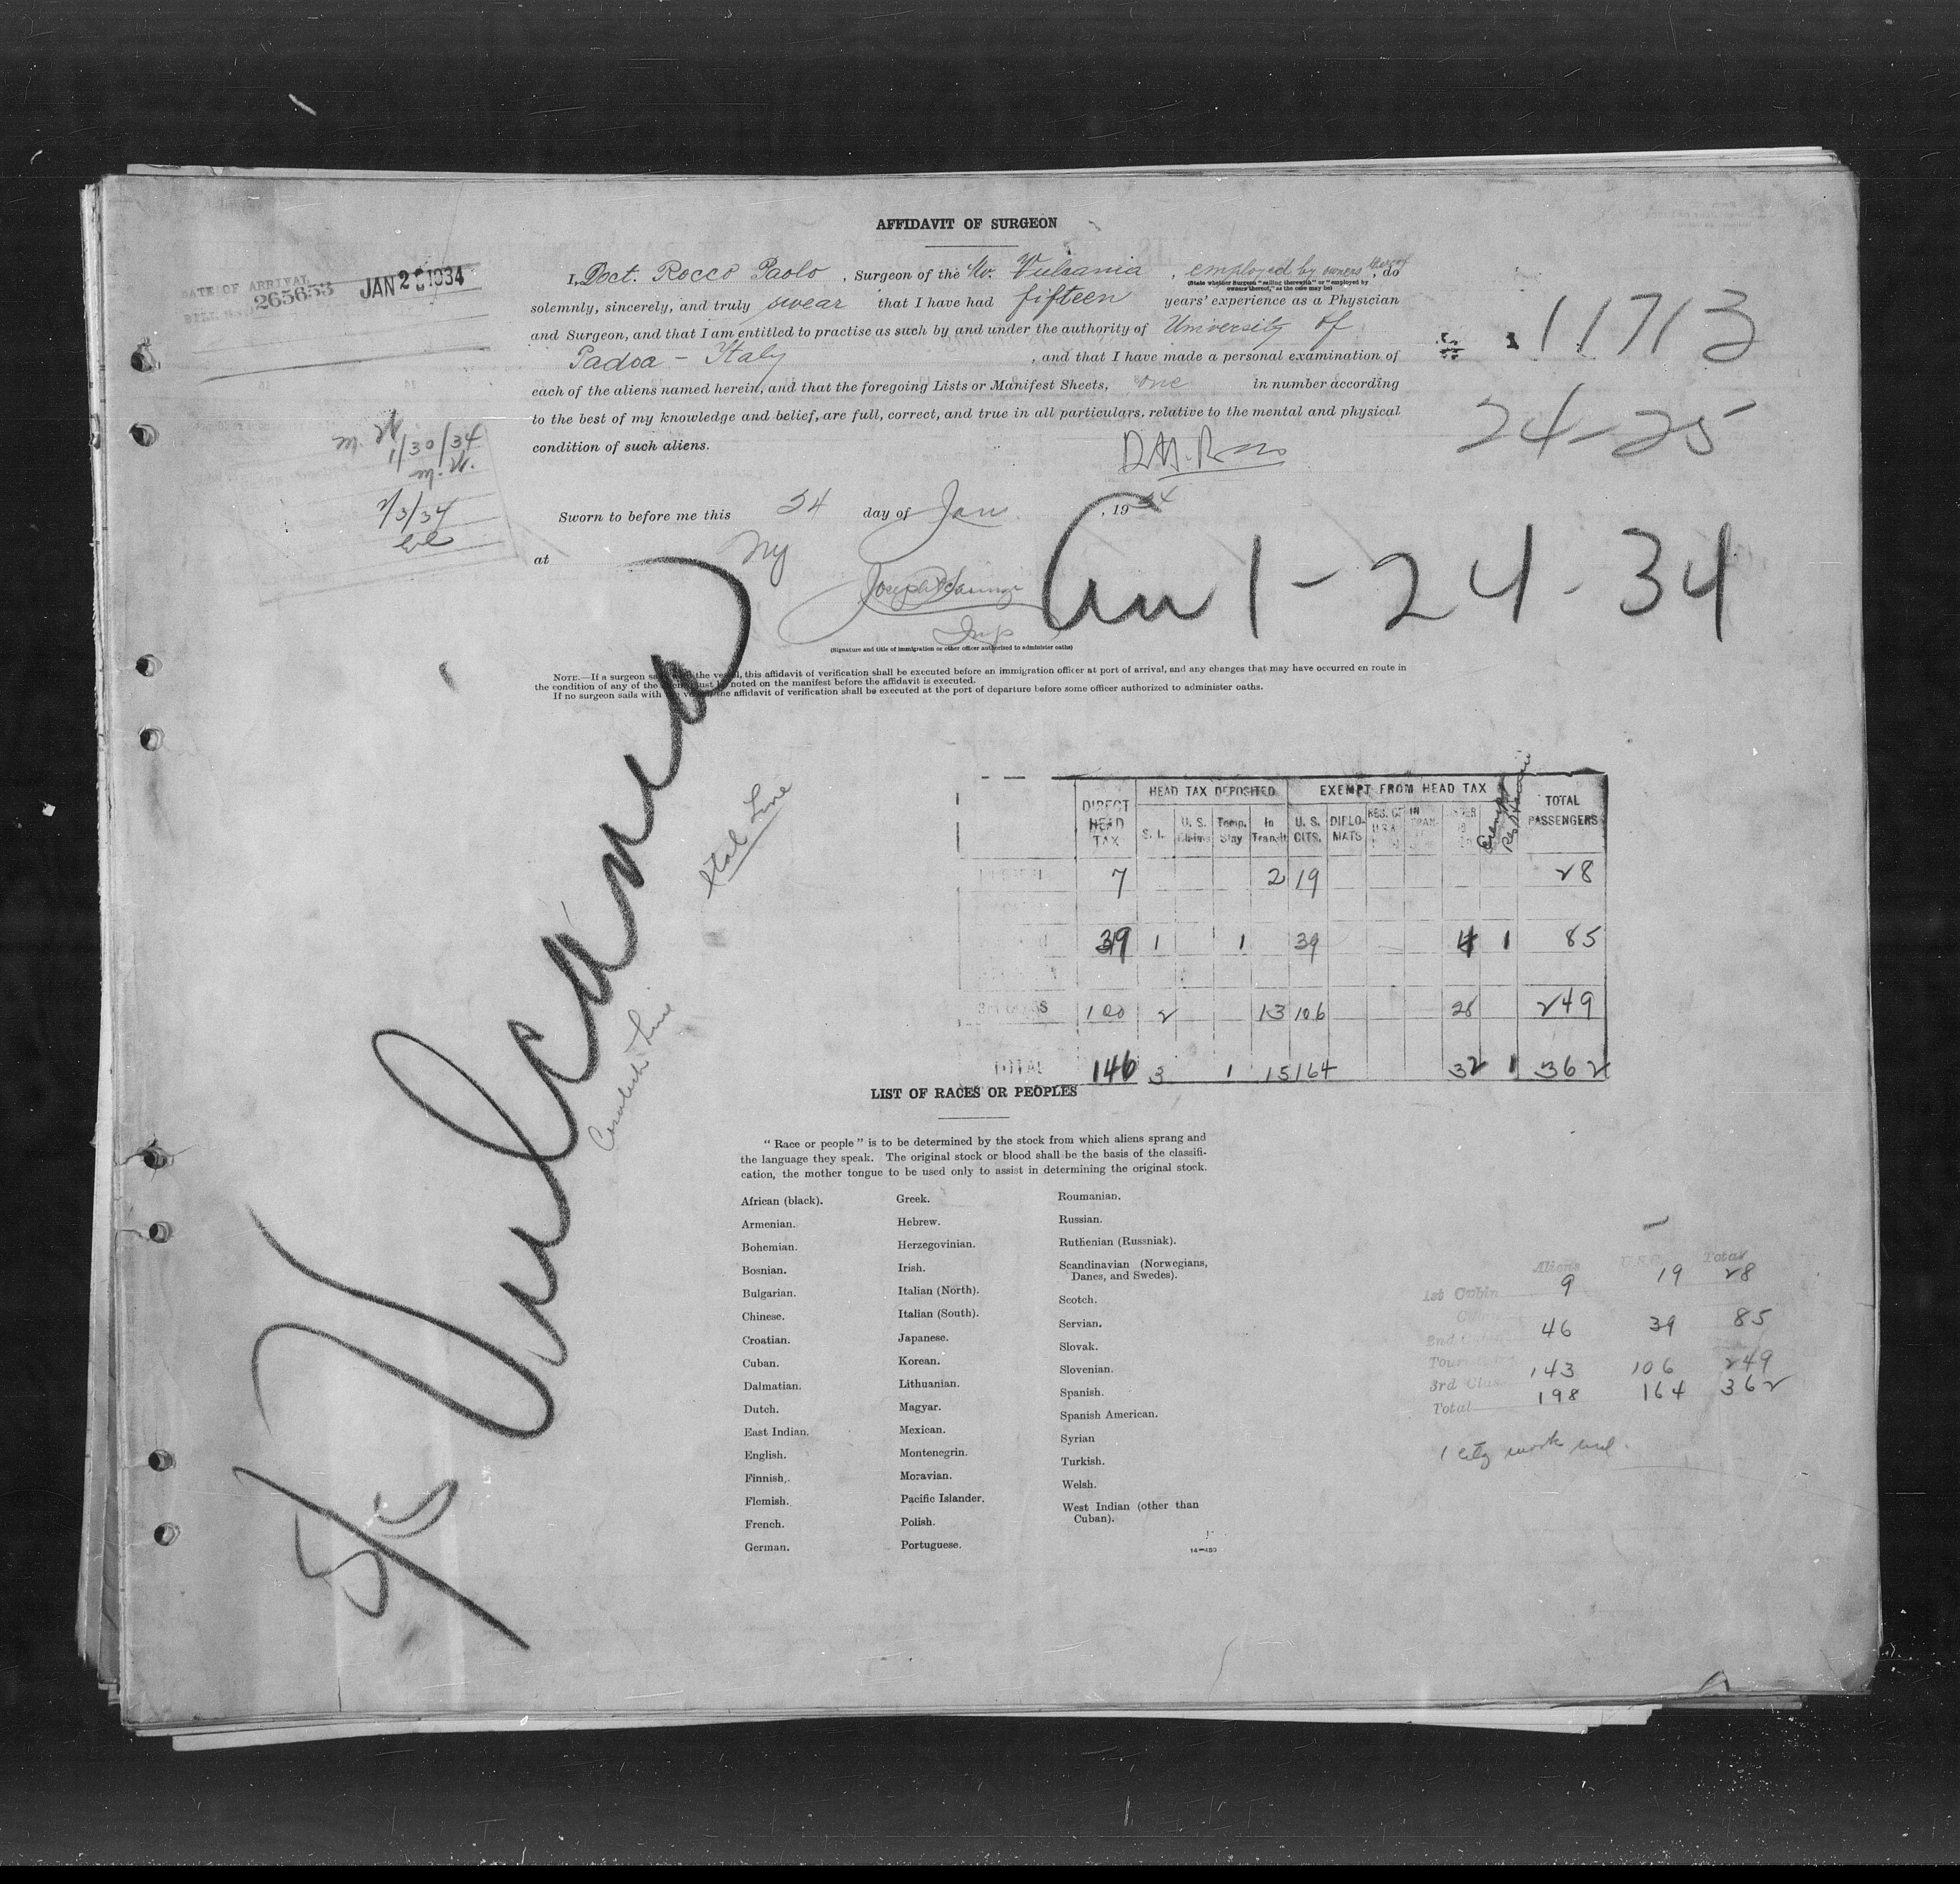 AFFIDAVIT OF SURGEON
DATE OF ARRIVAL JAN 2 1934
265653
I, Doct. Rocco Paolo, Surgeon of the Mv. Vulcania, employed by owners thereof, do
(State whether Surgeon "sailing therewith" or "employed by
owners thereof," as the case may be)
solemnly, sincerely, and truly swear that I have had fifteen years' experience as a Physician
and Surgeon, and that I am entitled to practise as such by and under the authority of University of
Padoa - Italy, and that I have made a personal examination of
each of the aliens named herein, and that the foregoing Lists or Manifest Sheets, one in number according
to the best of my knowledge and belief, are full, correct, and true in all particulars, relative to the mental and physical
condition of such aliens.
11713
24-25
1/30/34
2/3/34
Sworn to before me this 24 day of Jan, 1934
at Ny
Insp
(Signature and title of immigration or other officer authorized to administer oaths)
1-24-34
NOTE.—If a surgeon sails the vessel, this affidavit of verification shall be executed before an immigration officer at port of arrival, and any changes that may have occurred en route in
the condition of any of the must be noted on the manifest before the affidavit is executed.
If no surgeon sails with the affidavit of verification shall be executed at the port of departure before some officer authorized to administer oaths.
S/S Vulcania
Ital Line
Cosulich Line
DIRECT HEAD TAX
HEAD TAX DEPOSITED
EXEMPT FROM HEAD TAX
TOTAL PASSENGERS
S. I. U. S. Temp. Stay In Transit U. S. CITS. DIPLOMATS
7 2 19 28
39 1 1 39 4 1 85
100 2 13 106 28 249
TOTAL 146 3 1 15 164 32 1 362
LIST OF RACES OR PEOPLES
"Race or people" is to be determined by the stock from which aliens sprang and
the language they speak. The original stock or blood shall be the basis of the classifi-
cation, the mother tongue to be used only to assist in determining the original stock.
African (black).
Armenian.
Bohemian.
Bosnian.
Bulgarian.
Chinese.
Croatian.
Cuban.
Dalmatian.
Dutch.
East Indian.
English.
Finnish.
Flemish.
French.
German.
Greek.
Hebrew.
Herzegovinian.
Irish.
Italian (North).
Italian (South).
Japanese.
Korean.
Lithuanian.
Magyar.
Mexican.
Montenegrin.
Moravian.
Pacific Islander.
Polish.
Portuguese.
Roumanian.
Russian.
Ruthenian (Russniak).
Scandinavian (Norwegians,
Danes, and Swedes).
Scotch.
Servian.
Slovak.
Slovenian.
Spanish.
Spanish American.
Syrian
Turkish.
Welsh.
West Indian (other than
Cuban).
Aliens U.S.C. Total
1st Cabin 9 19 28
2nd 46 39 85
3rd Class 143 106 249
Total 198 164 362
1 city work